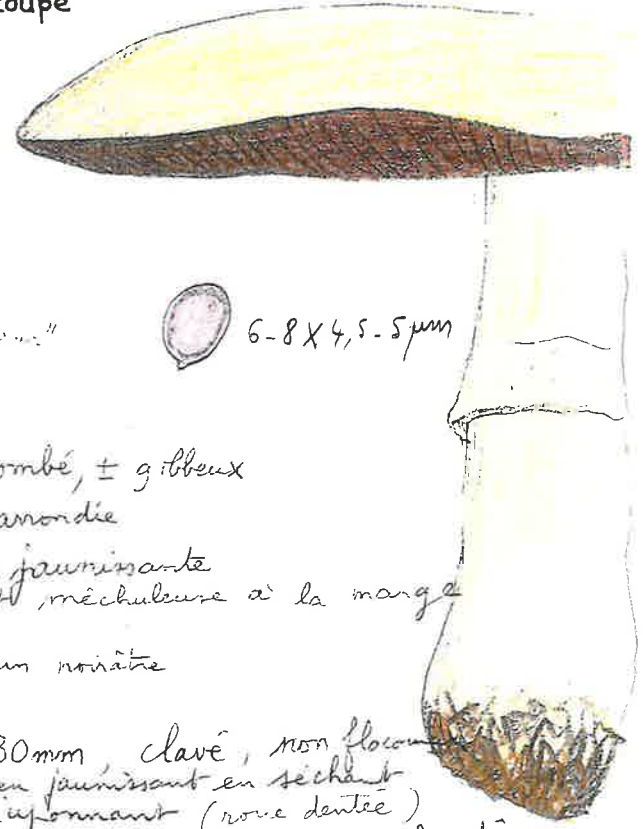 coupe
6-8 X 4,5-5 µm
ombé, ± gibbeux
arrondie
jaunissante
, méchuleuse à la marge
un noirâtre
30mm, clavé, non flocon
eu jaunissant en séchant
juponnant (roue dentée)